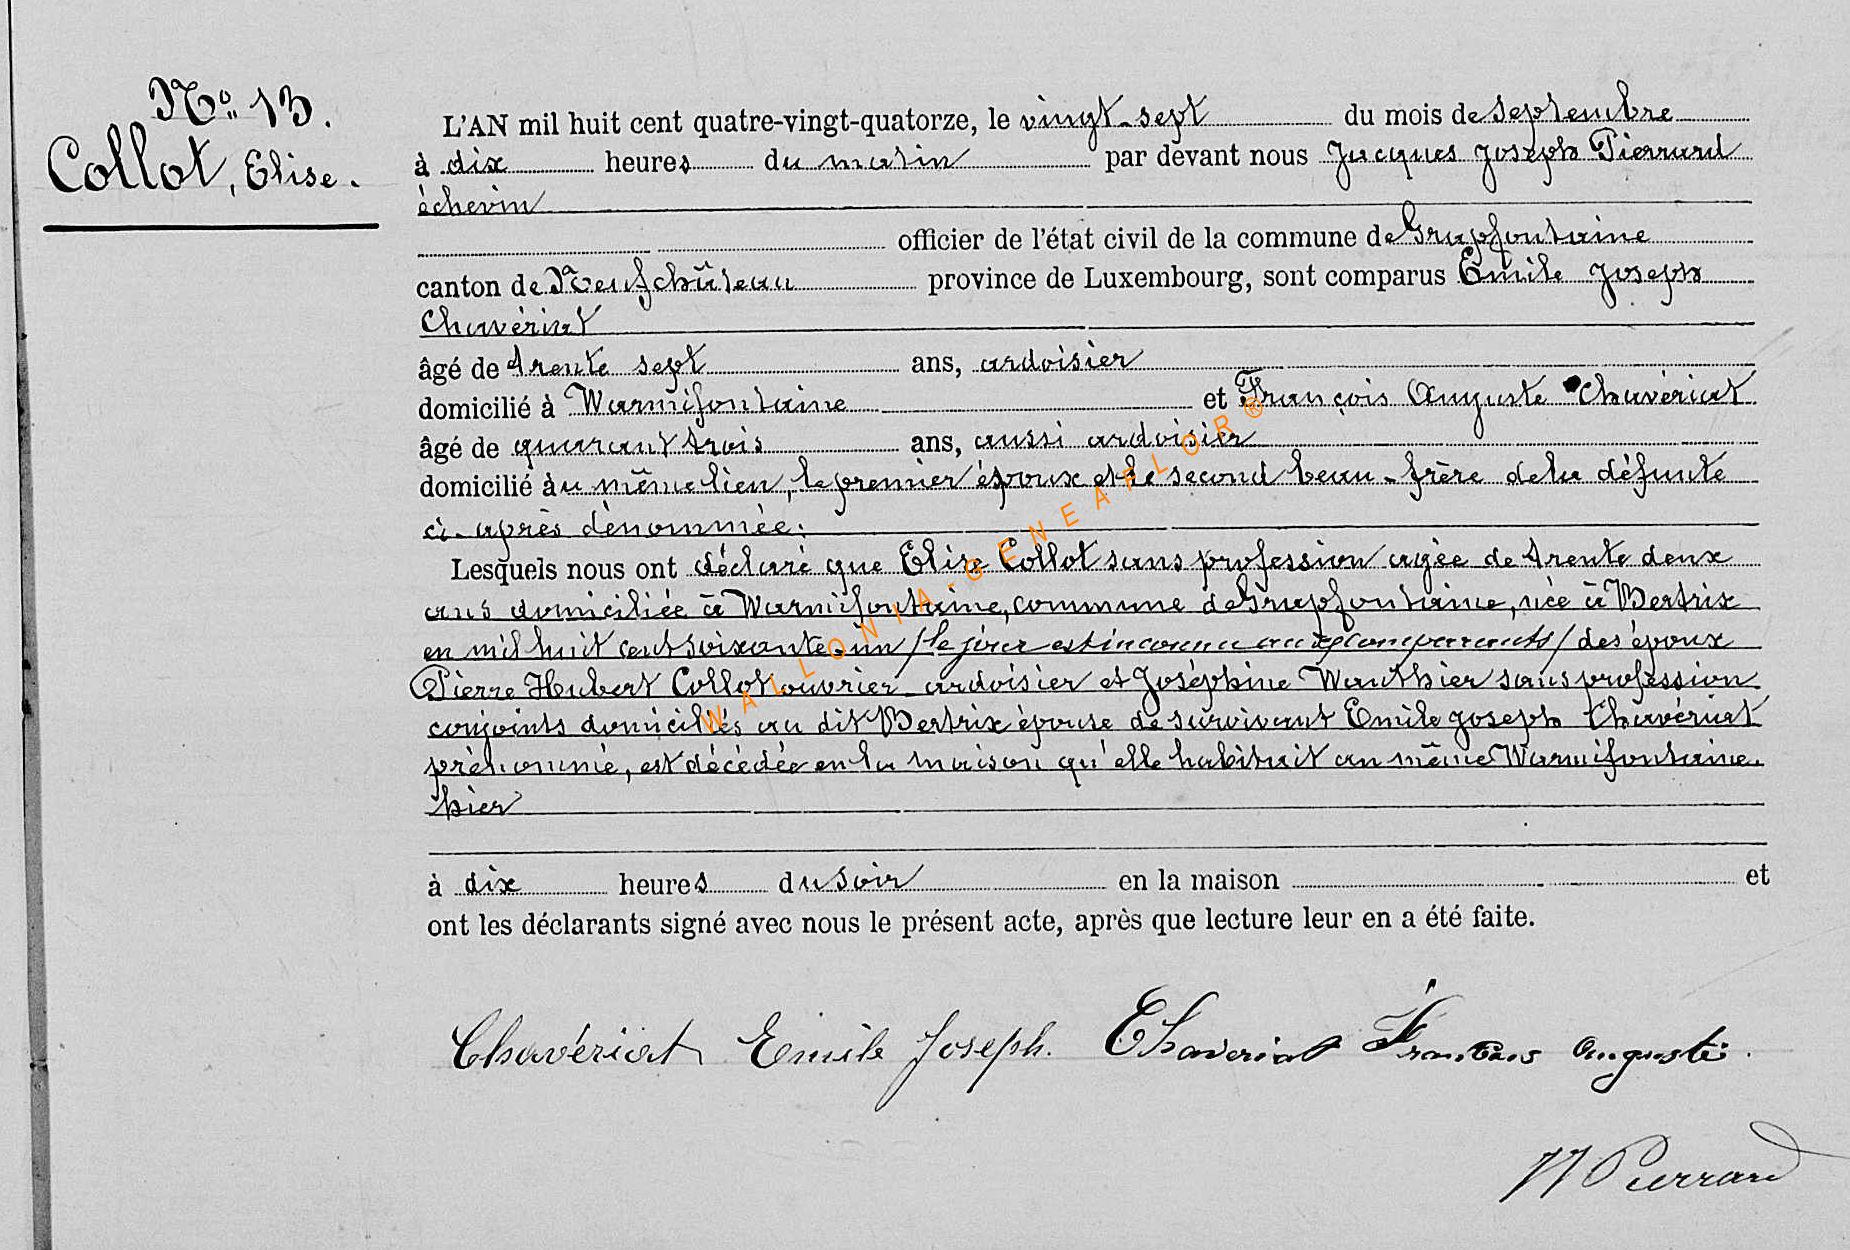 No 13.
Collot, Elise.
L'AN mil huit cent quatre-vingt-quatorze, le vingt-sept du mois de septembre
à dix heures du matin par devant nous Jacques Joseph Pierrard
échevin
officier de l'état civil de la commune de Grapfontaine
canton de Neufchâteau province de Luxembourg, sont comparus Emile Joseph
Chavériat
âgé de trente sept ans, ardoisier
domicilié à Warmifontaine et François Auguste Chavériat
âgé de quarant trois ans, aussi ardoisier
domicilié àu même lieu, le premier époux et le second beau-frère de la défunte
ci-après dénommée:
Lesquels nous ont déclaré que Elise Collot sans profession agée de trente deux
ans domiciliée à Warmifontaine, commune de Grapfontaine, née à Bertrix
en mil huit cent soixante-un / le jour est inconnu aux comparants / des époux
Pierre Hubert Collot ouvrier-ardoisier et Joséphine Wauthier sans profession
conjoints domiciliés au dit Bertrix épouse de survivant Emile Joseph Chavériat
prénommé, est décédée en la maison qu'elle habitait au même Warmifontaine.
hier
à dix heures du soir en la maison et
ont les déclarants signé avec nous le présent acte, après que lecture leur en a été faite.
Chavériat Emile Joseph. Chaveriat Francois Auguste.
Pierrard
WALLONIA-GENEAFLOR®